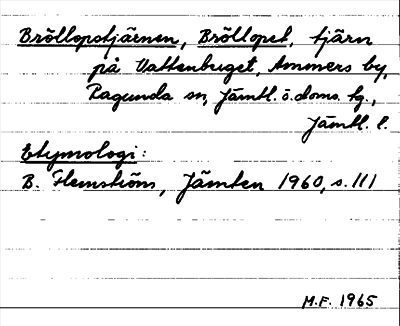 Bröllopstjärnen, Bröllopet, tjärn
på Vattenberget, Ammers by,
Ragunda sn, Jämtl. ö. doms. tg.,
Jämtl. l.
Etymologi:
B. Flemström, Jämten 1960, s. 111
M.F. 1965